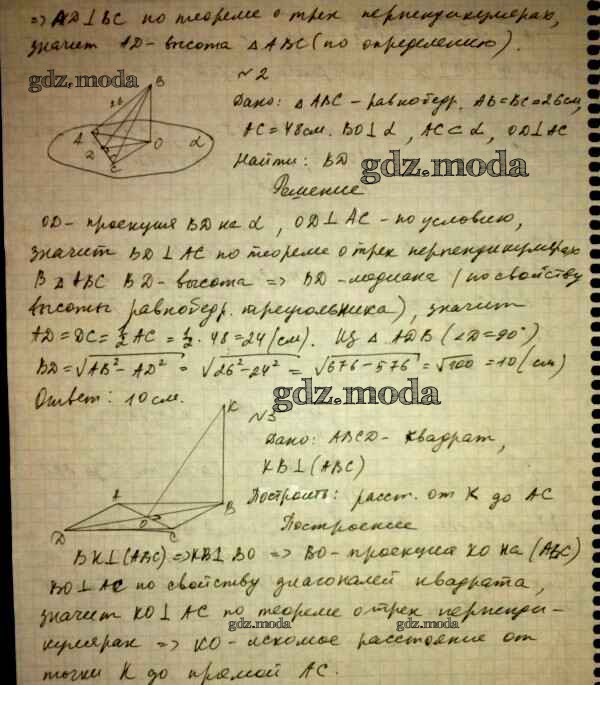 => AD⊥BC по теореме о трех перпендикулярах,
значит AD - высота △ABC (по определению).
gdz.moda
N2
B
26
A
O
α
2
C
Дано: △ABC - равнобедр. AB=BC=26см,
AC=48см. BO⊥α, AC⊂α, OD⊥AC
Найти: BD
gdz.moda
Решение
OD - проекция BD на α, OD⊥AC - по условию,
значит BD⊥AC по теореме о трех перпендикулярах
В △ABC BD - высота => BD - медиана (по свойству
высоты равнобедр. треугольника), значит
AD=DC=½AC=½·48=24(см). Из △ADB (∠D=90°)
BD=√AB²-AD² = √26²-24² = √676-576 = √100 = 10(см)
Ответ: 10см.
gdz.moda
K
N3
A
B
D
O
C
Дано: ABCD - квадрат,
KB⊥(ABC)
Построить: расст. от K до AC
Построение
BK⊥(ABC) => KB⊥BO => BO - проекция KO на (ABC)
BO⊥AC по свойству диагоналей квадрата,
значит KO⊥AC по теореме о трех перпенди-
gdz.moda gdz.moda
кулярах => KO - искомое расстояние от
точки K до прямой AC.
gdz.moda